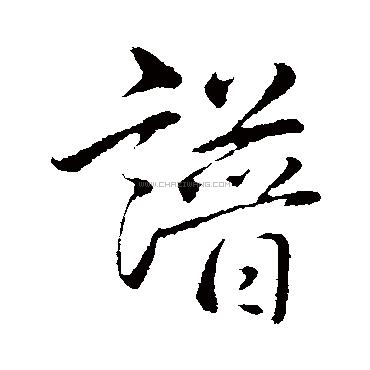 譜
WWW.CHAZIWANG.COM